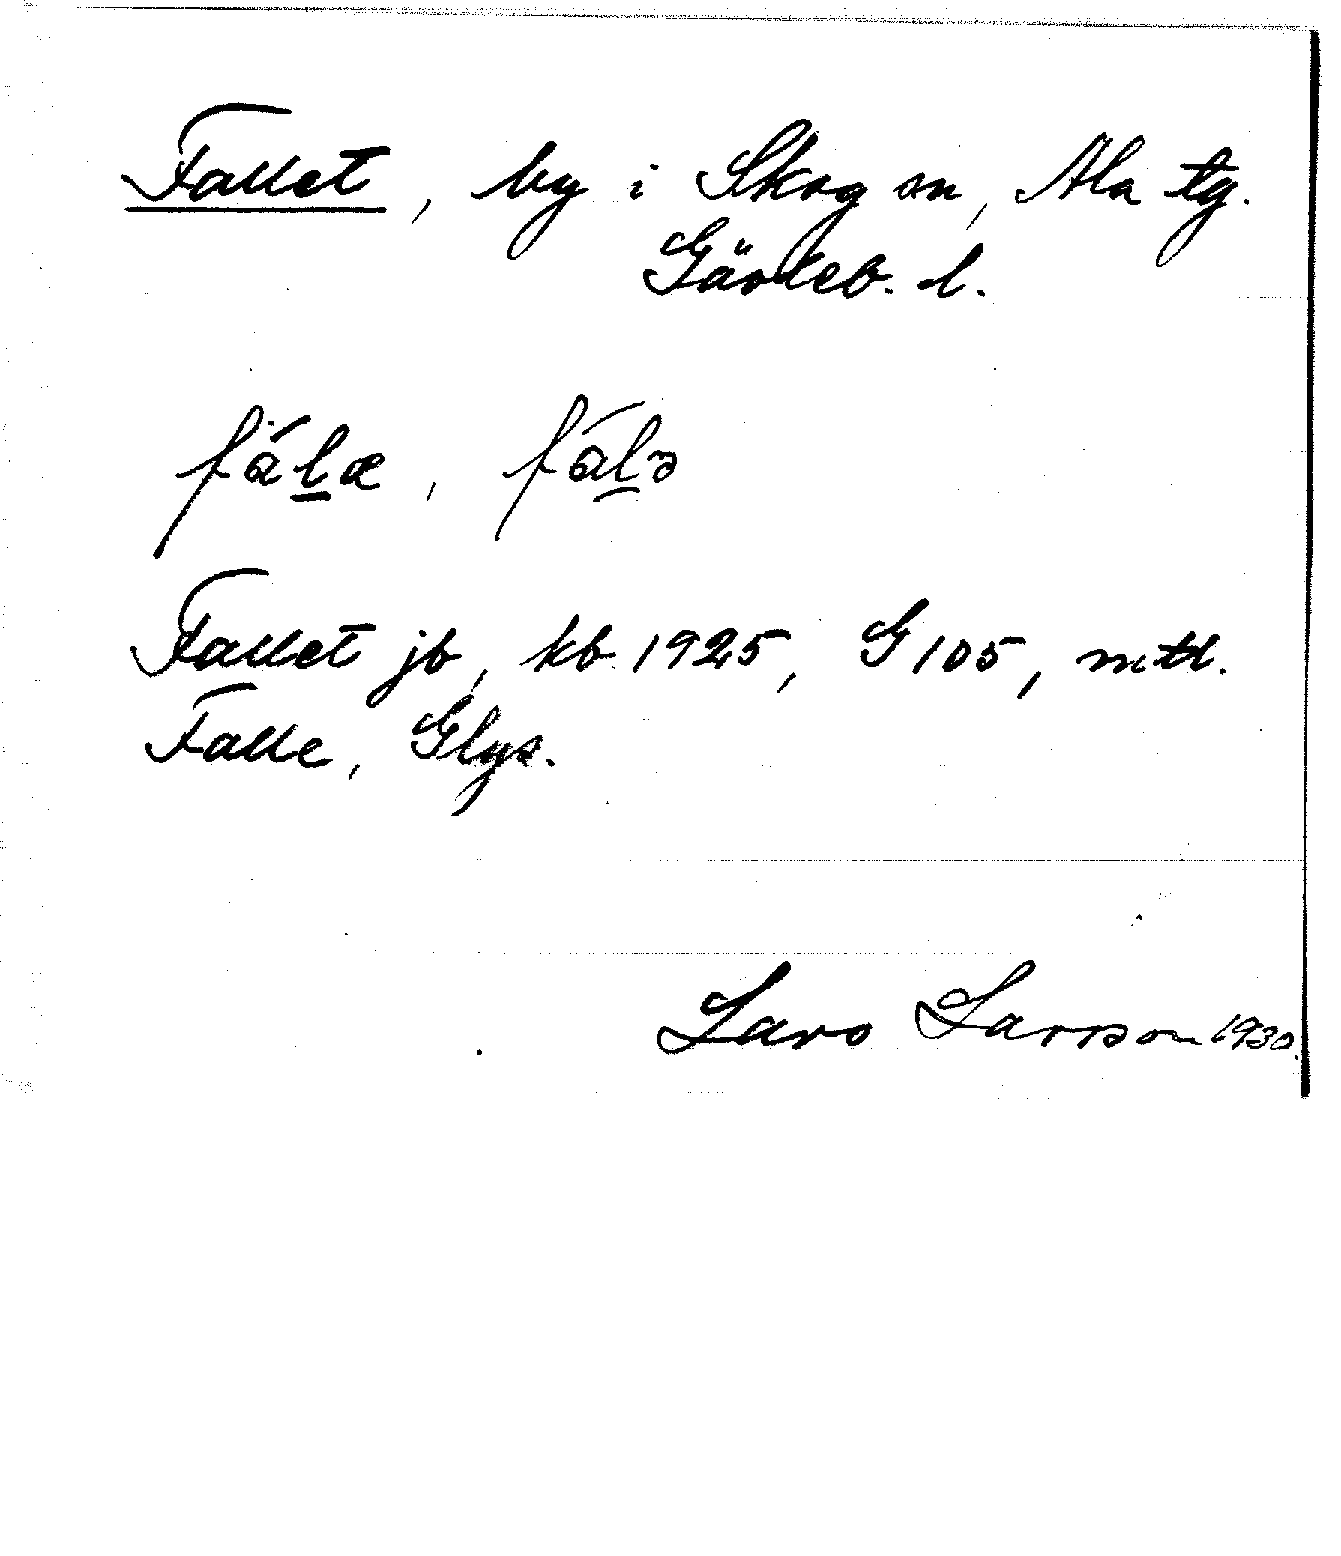 Fallet, by i Skog sn, Ala tg.
Gävleb. l.
fál̲æ, fál̲ə
Fallet jb, kb 1925, G 105, mtl.
Falle, Glys.
Lars Larsson 1930.